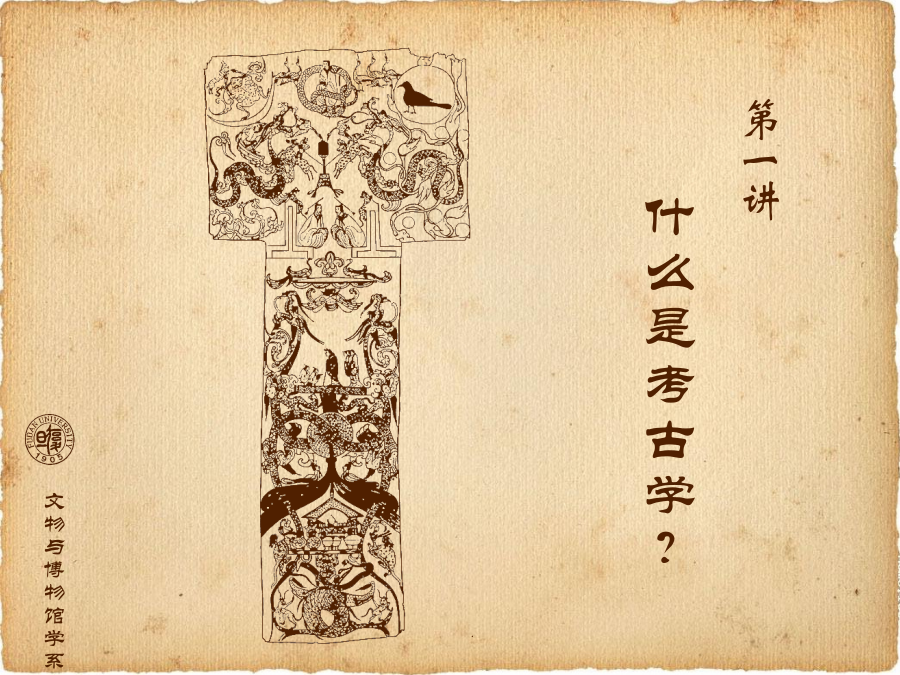 第一讲
什么是考古学?
FUDAN UNIVERSITY
復旦
1905
文物与博物馆学系